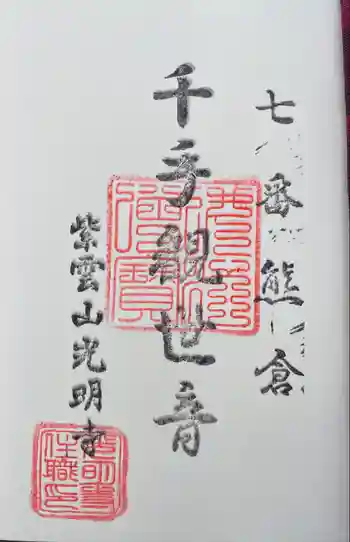 七番熊倉
千手観世音
紫雲山光明寺
光明寺住職印